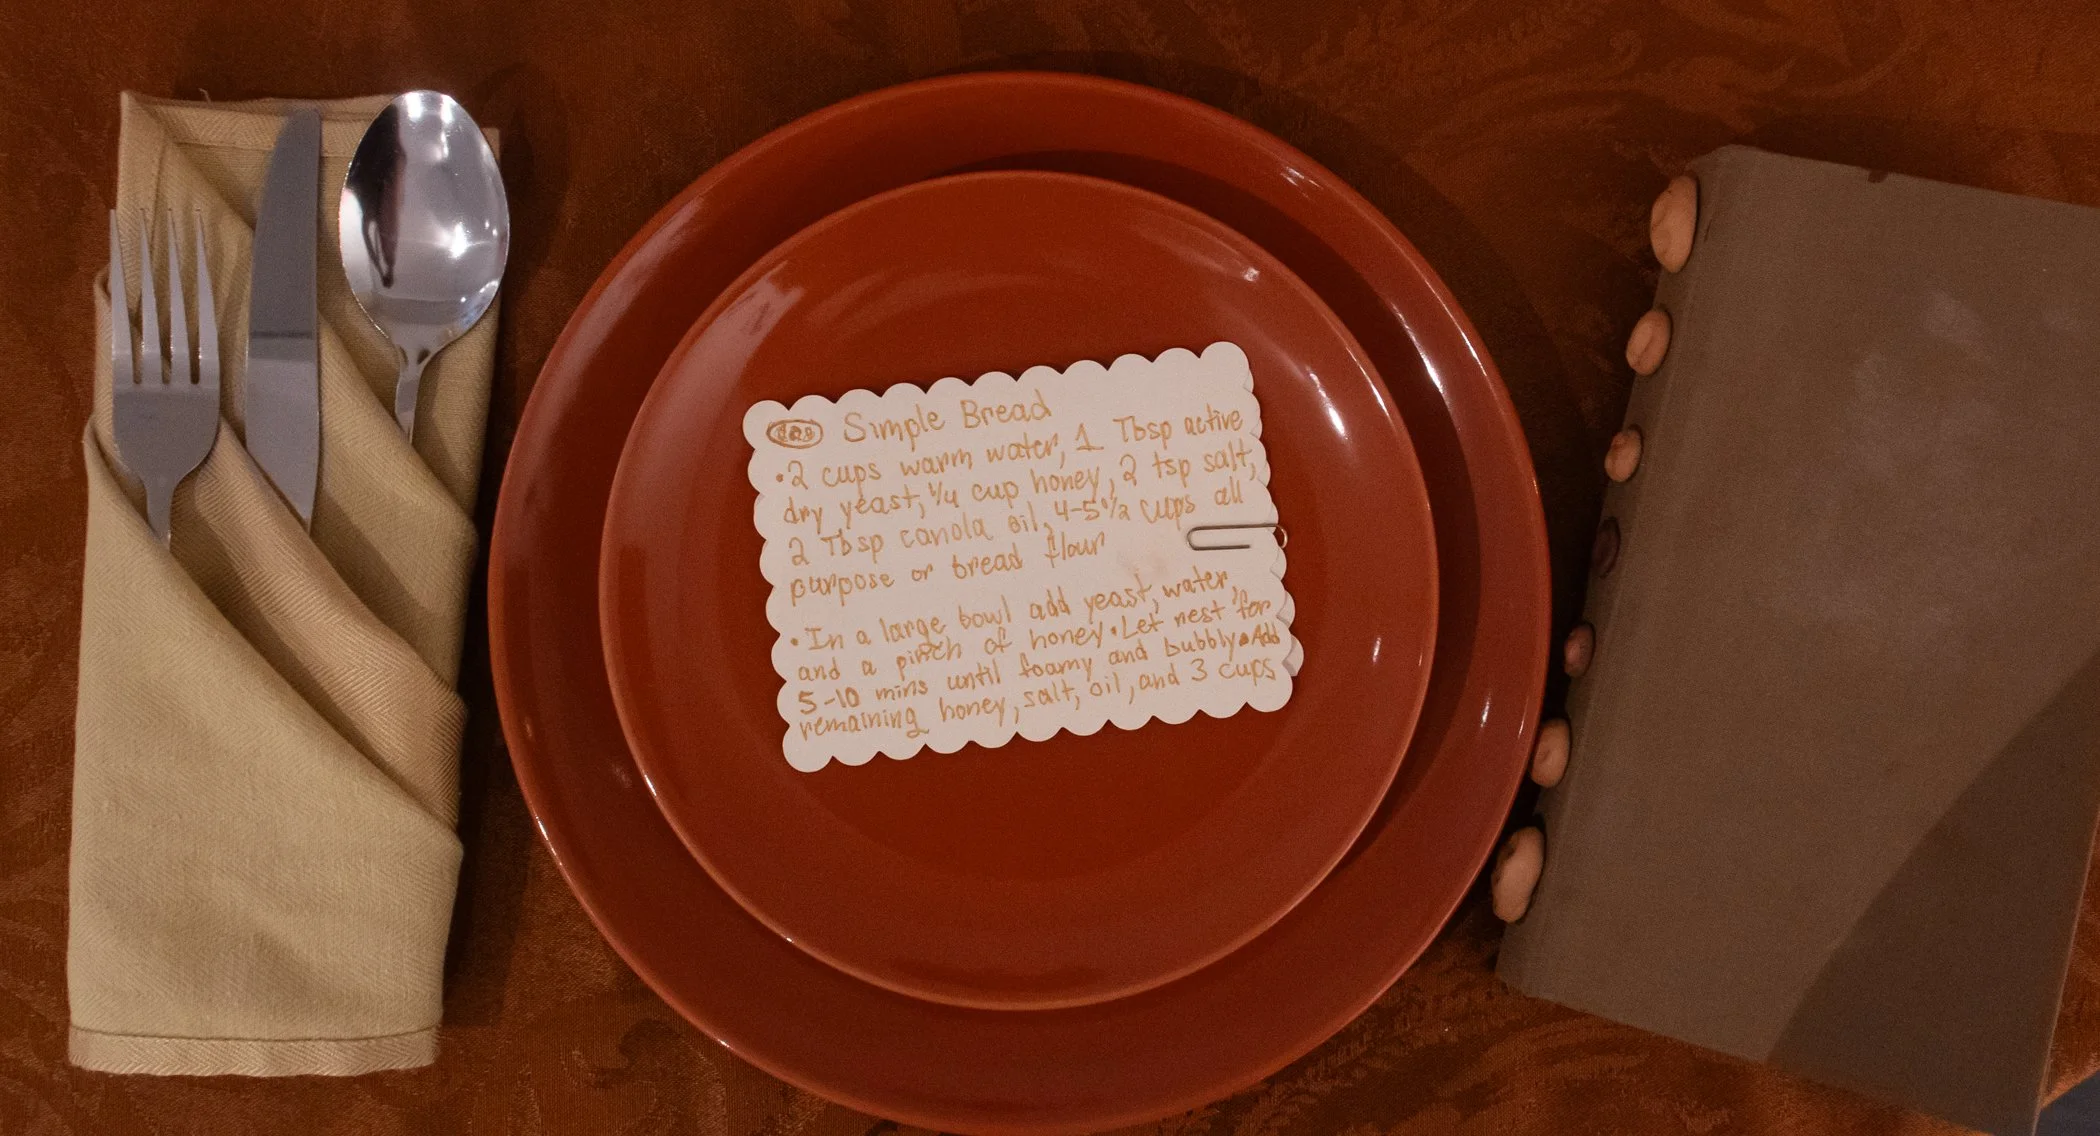 Simple Bread
•2 cups warm water, 1 Tbsp active
dry yeast, 1/4 cup honey, 2 tsp salt,
2 Tbsp canola oil, 4-5 1/2 cups all
purpose or bread flour
•In a large bowl add yeast, water,
and a pinch of honey•Let rest for
5-10 mins until foamy and bubbly•Add
remaining honey, salt, oil, and 3 cups